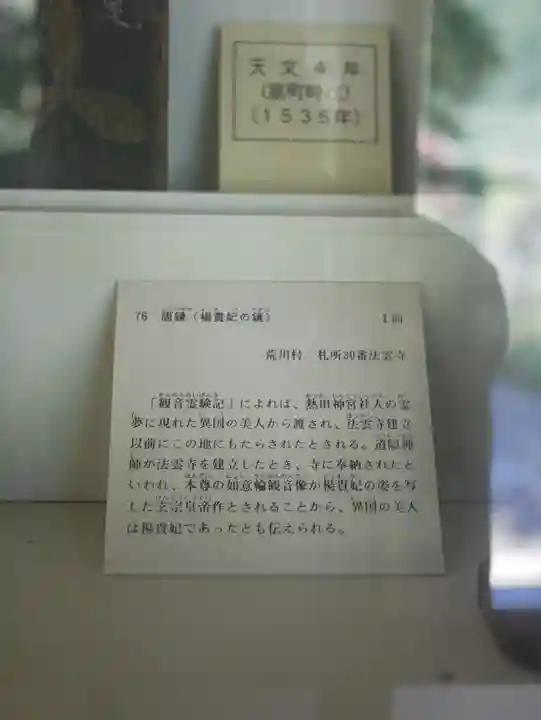 天文4年
(室町時代)
(1535年)
76 唐鏡(楊貴妃の鏡) 1面
荒川村 札所30番法雲寺
「観音霊験記」によれば、熱田神宮社人の霊
夢に現れた異国の美人から渡され、法雲寺建立
以前にこの地にもたらされたとされる。道隠禅
師が法雲寺を建立したとき、寺に奉納されたと
いわれ、本尊の如意輪観音像が楊貴妃の姿を写
した玄宗皇帝作とされることから、異国の美人
は楊貴妃であったとも伝えられる。